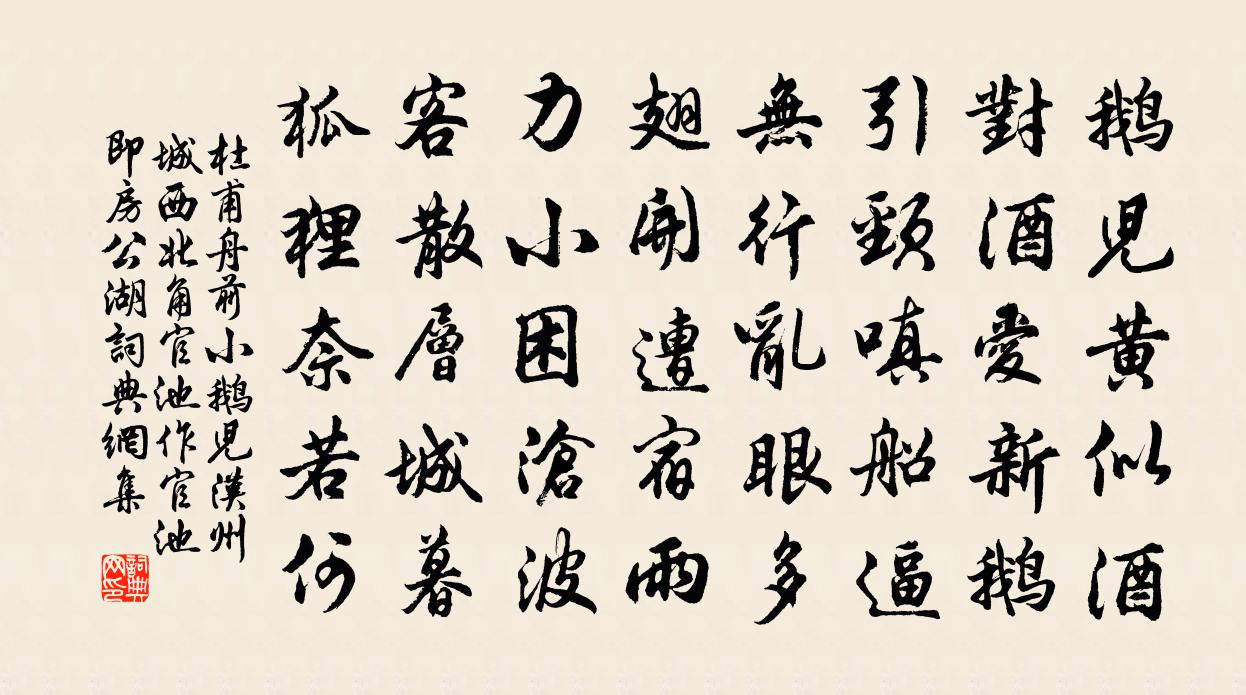 鵝兒黃似酒
對酒愛新鵝
引頸嗔船逼
無行亂眼多
翅開遭宿雨
力小困滄波
客散層城暮
狐狸奈若何
杜甫舟前小鵝兒漢州
城西北角官池作官池
即房公湖詞典網集
詞典網印